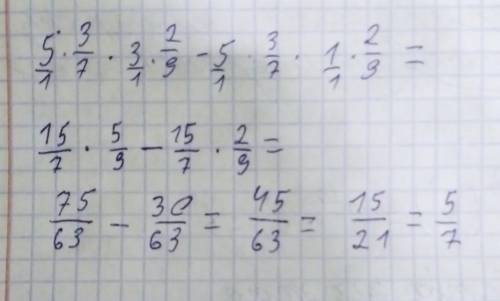 5/1 · 3/7 · 3/1 · 2/9 - 5/1 · 3/7 · 1/1 · 2/9 =
15/7 · 5/9 - 15/7 · 2/9 =
75/63 - 30/63 = 45/63 = 15/21 = 5/7